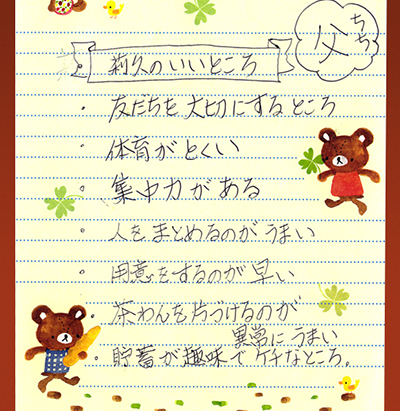 父
ちち
莉久のいいところ
・友だちを大切にするところ
・体育がとくい
・集中力がある
・人をまとめるのがうまい
・用意をするのが早い
・茶わんを片づけるのが
異常にうまい
・貯蓄が趣味でケチなところ。